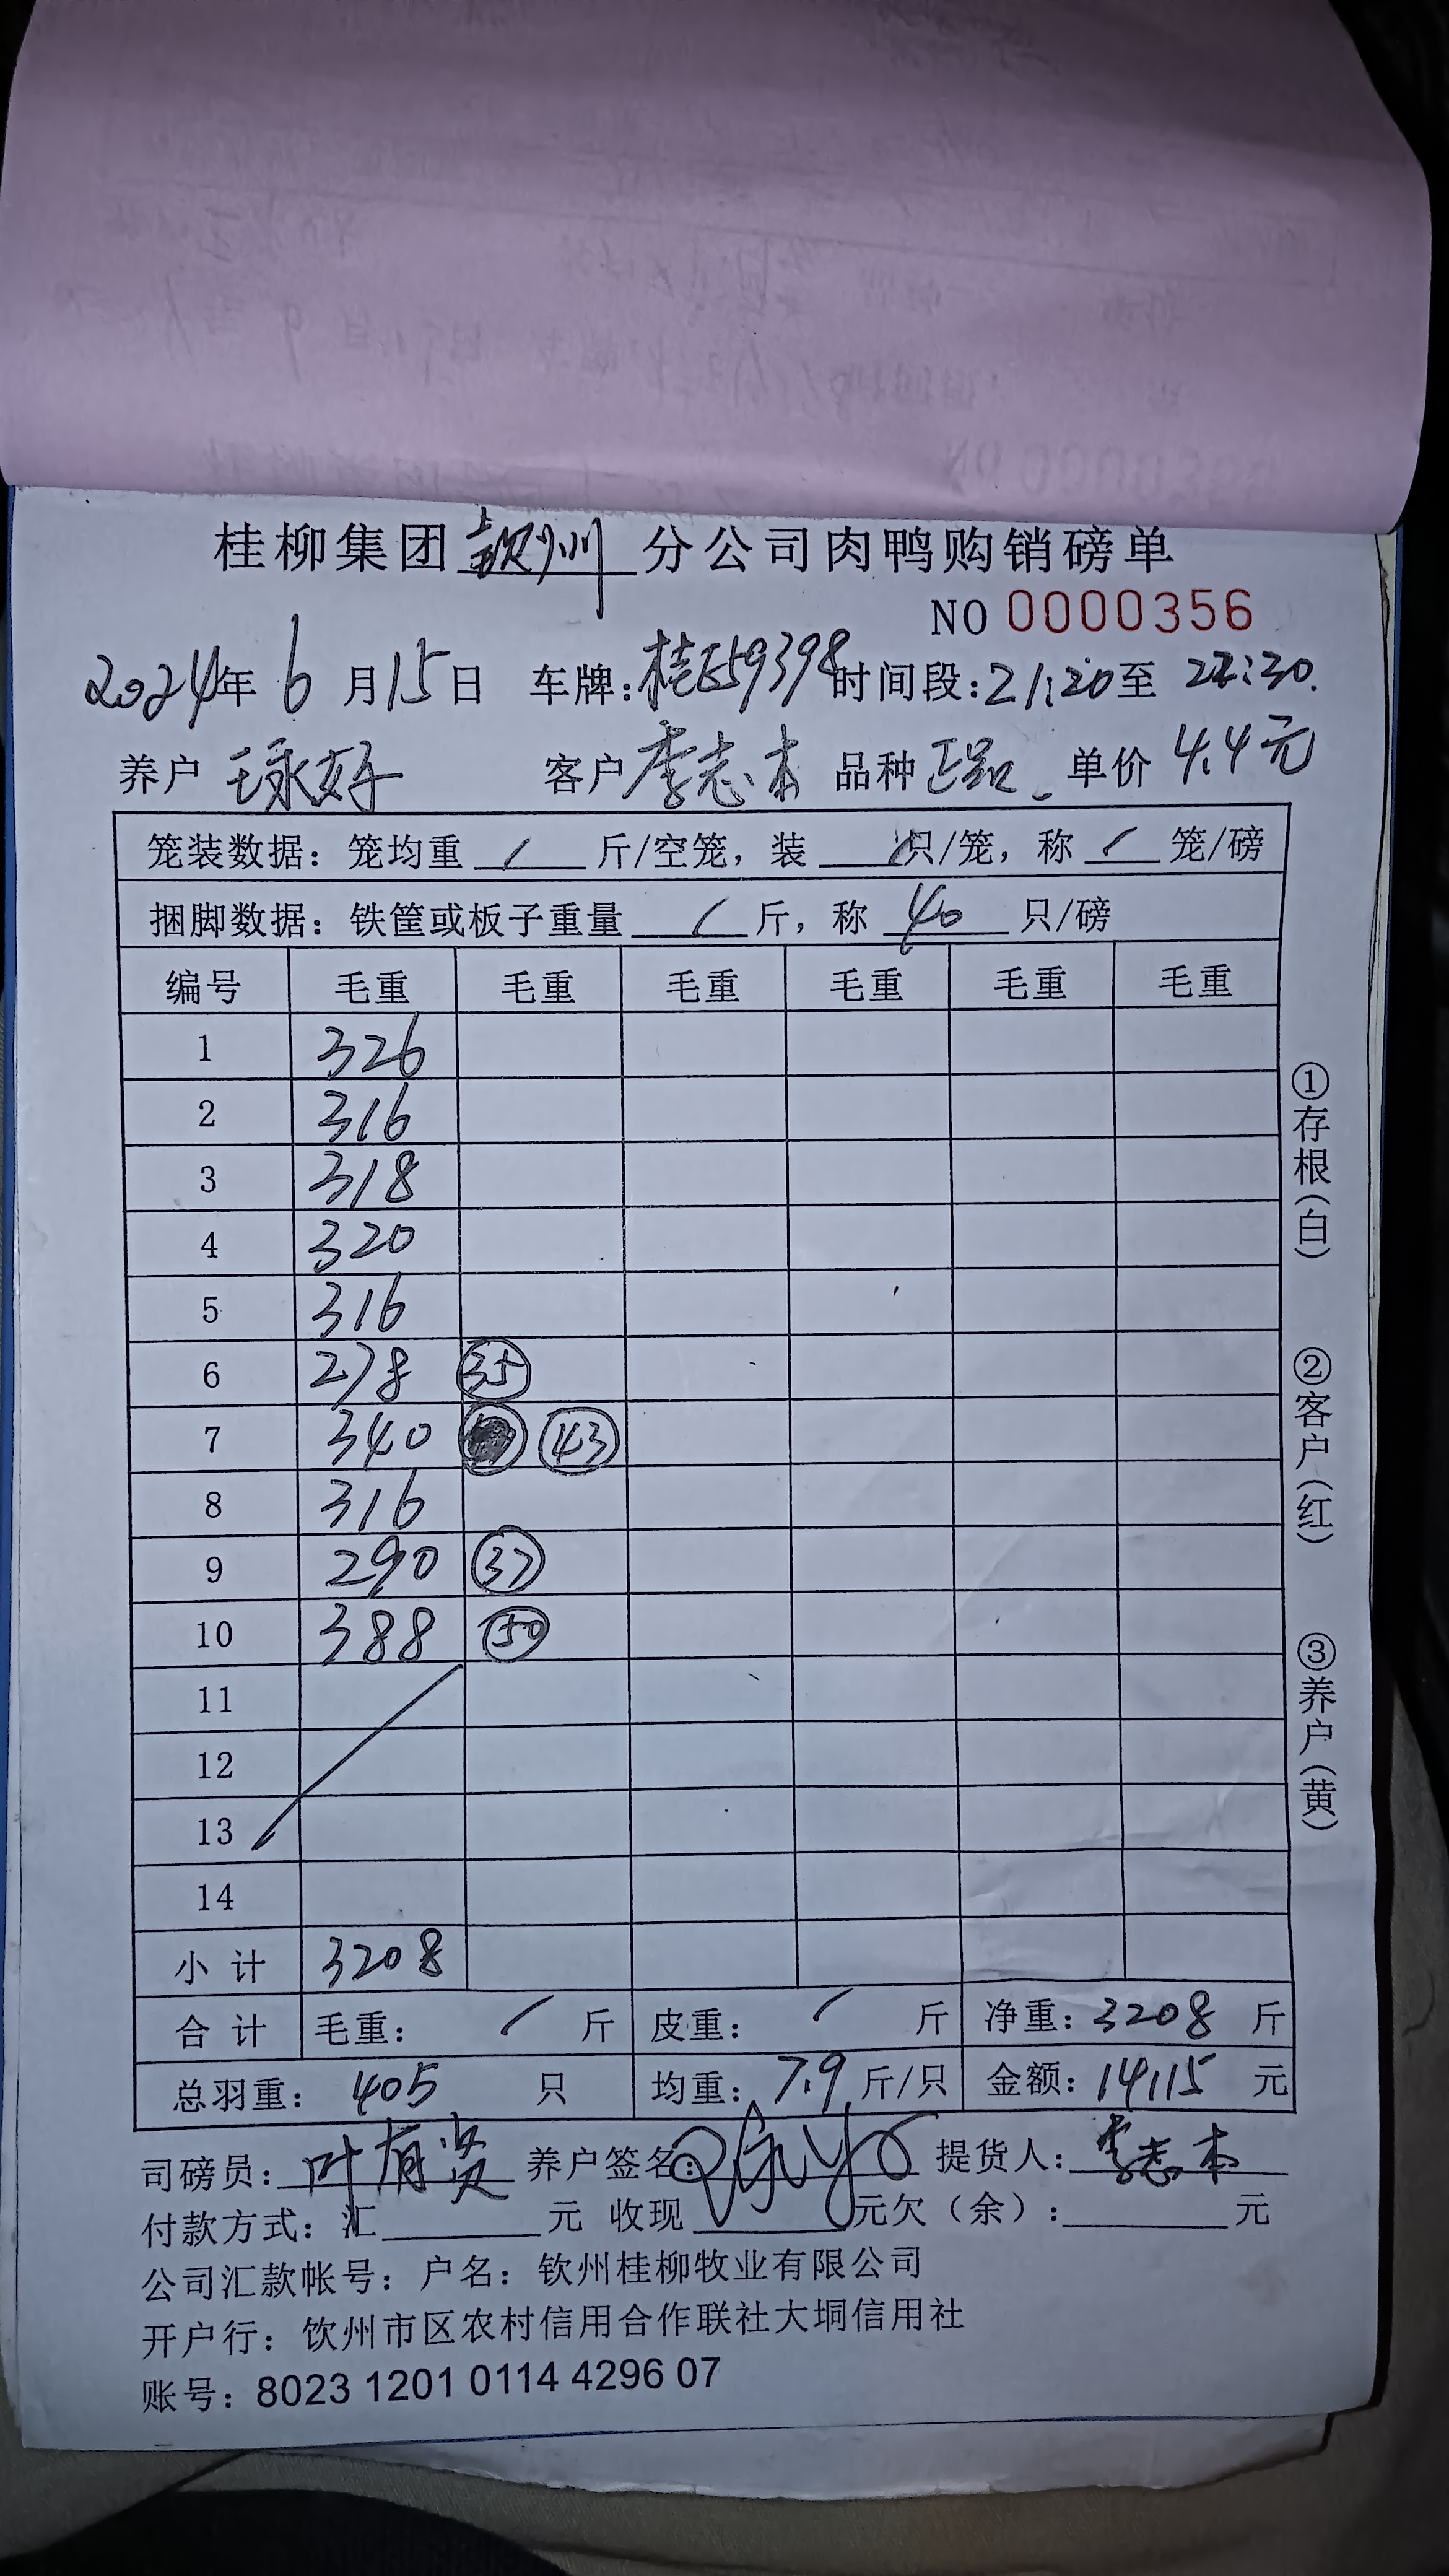 桂柳集团钦州分公司肉鸭购销磅单
NO 0000356
2024年6月15日 车牌:桂E59398 时间段:21:20至22:30.
养户 王永好 客户 李志本 品种 正品 单价 4.4元
笼装数据: 笼均重 / 斤/空笼, 装 / 只/笼, 称 / 笼/磅
捆脚数据: 铁筐或板子重量 / 斤, 称 40 只/磅
编号 毛重 毛重 毛重 毛重 毛重 毛重
1 326
2 316
3 318
4 320
5 316
6 278 35
7 340 43
8 316
9 290 37
10 388 50
11
12
13
14
小计 3208
合计 毛重: / 斤 皮重: / 斤 净重: 3208 斤
总羽重: 405 只 均重: 7.9 斤/只 金额: 14115 元
司磅员: 叶有贤 养户签名: 提货人: 李志本
付款方式: 汇 元 收现 元欠(余): 元
公司汇款帐号: 户名: 钦州桂柳牧业有限公司
开户行: 钦州市区农村信用合作联社大垌信用社
账号: 8023 1201 0114 4296 07
①存根(白)
②客户(红)
③养户(黄)